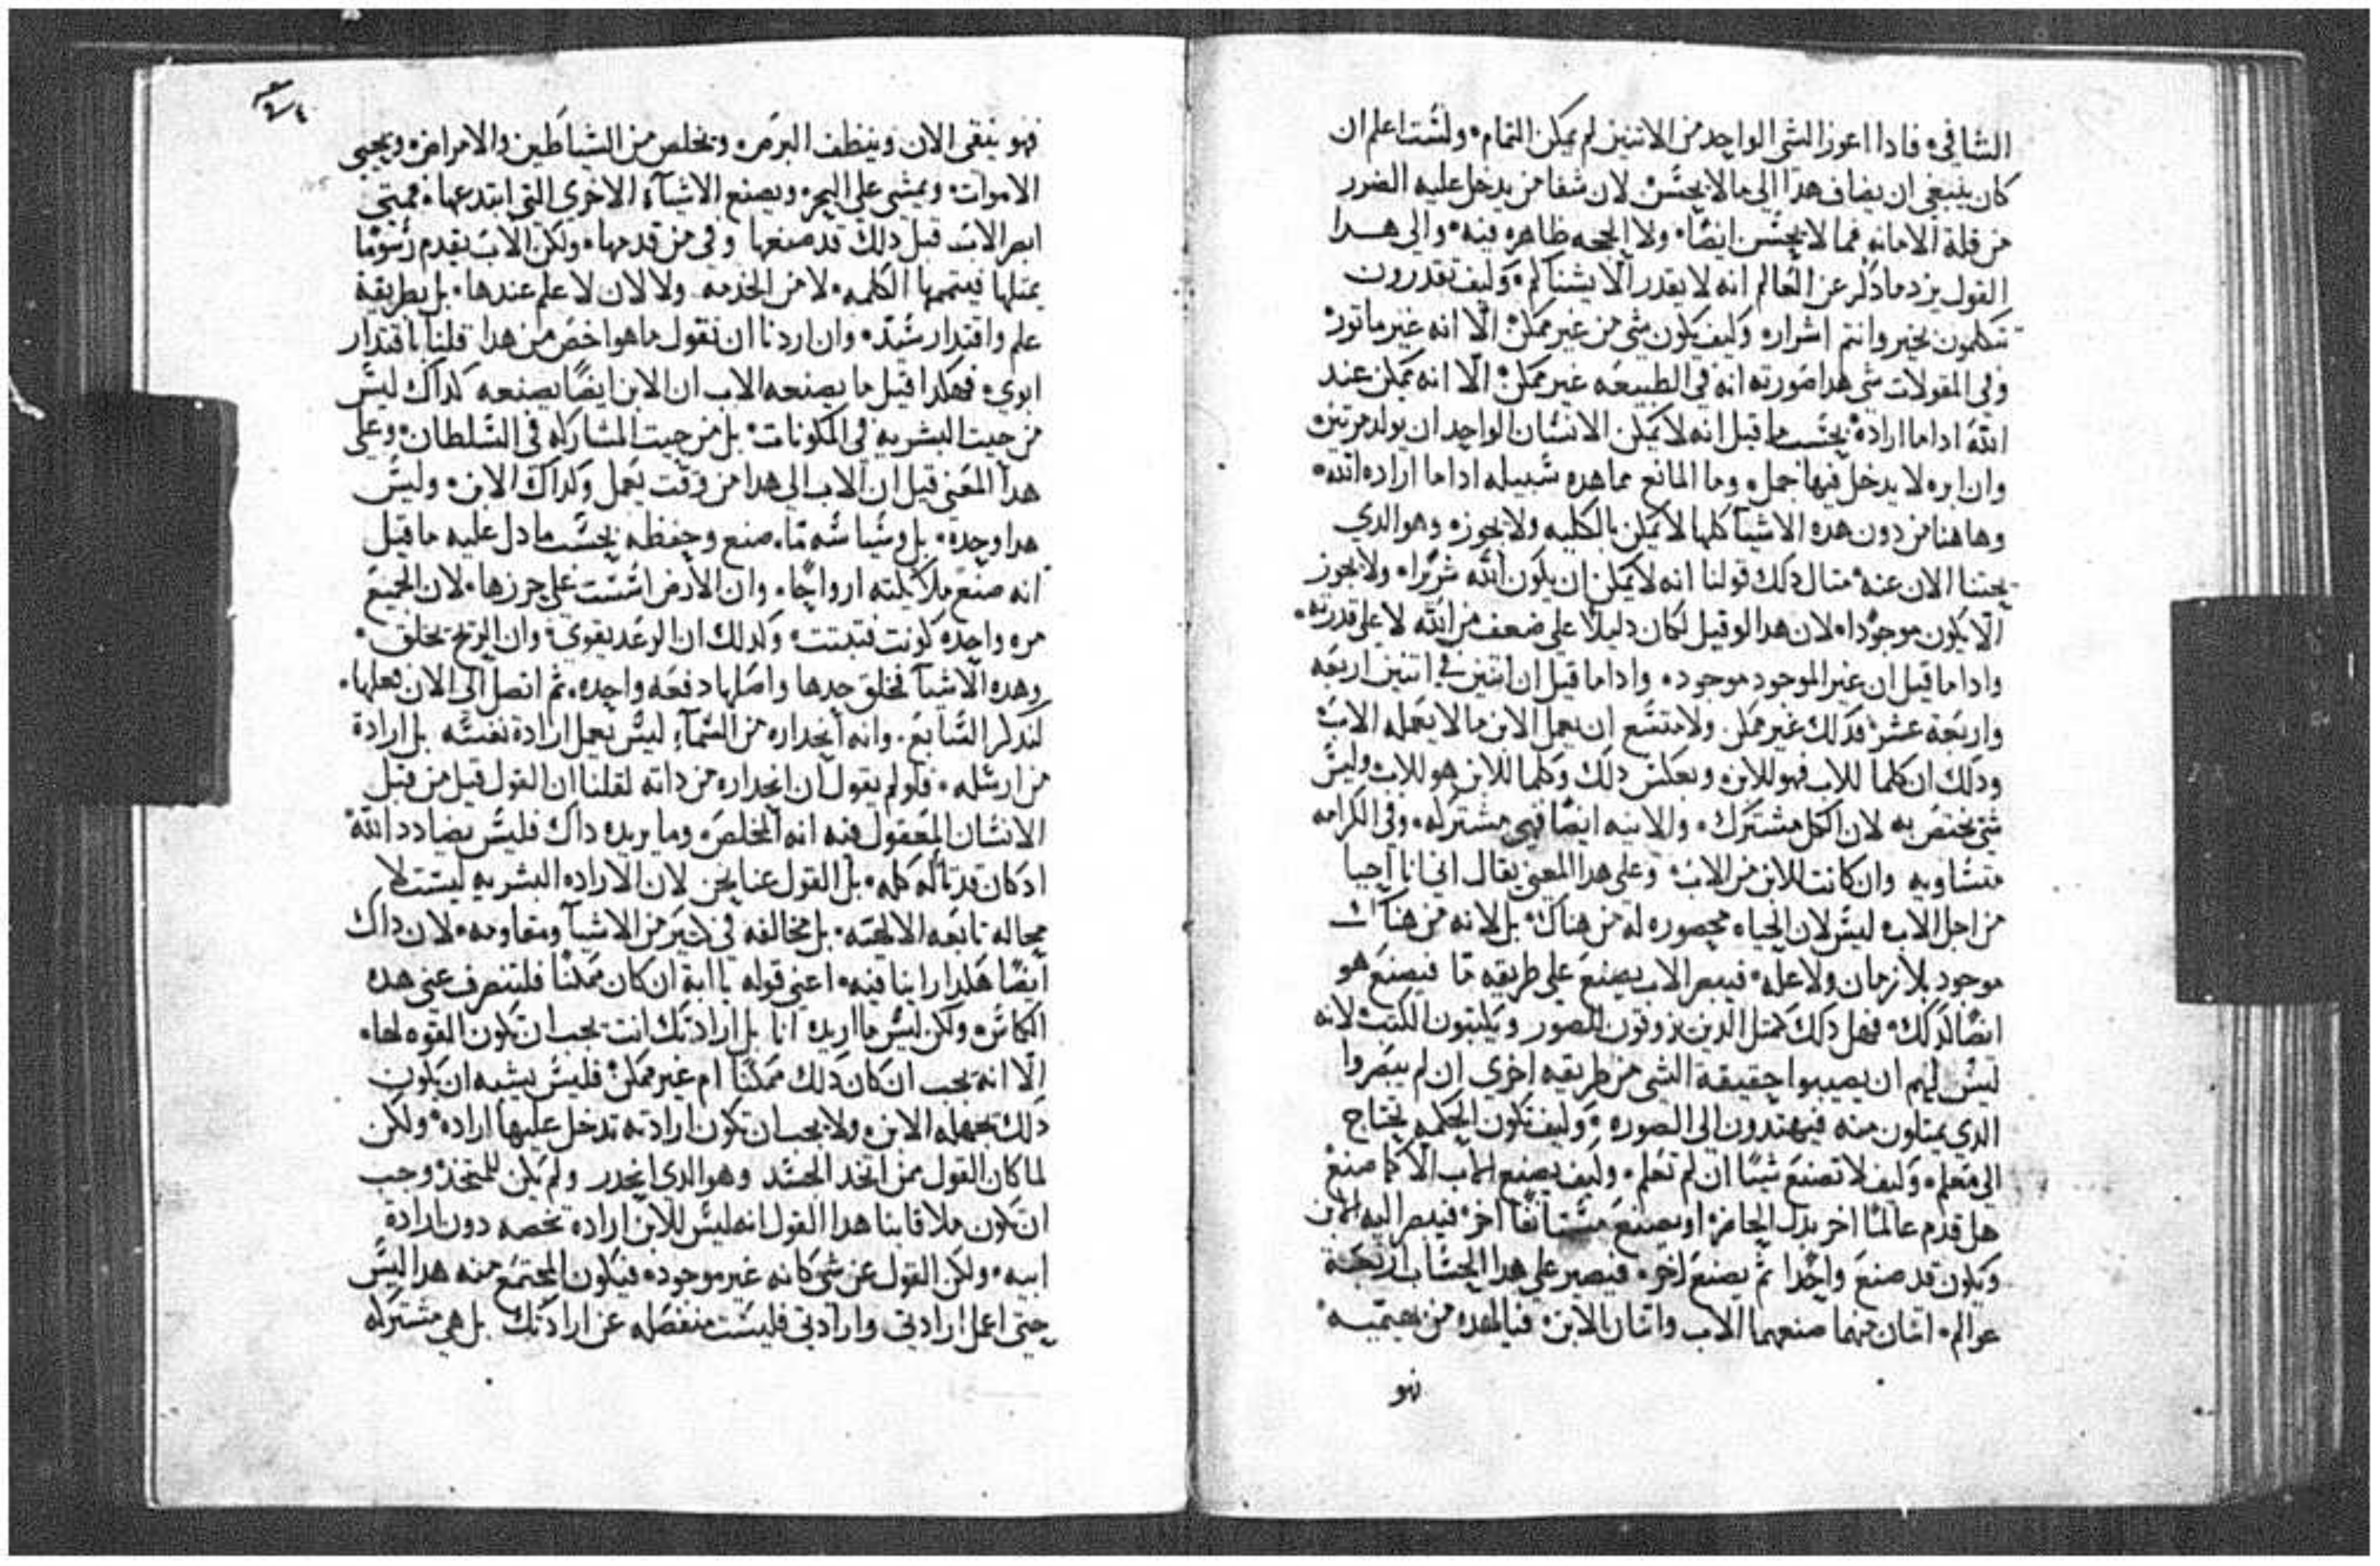 الشافي، فادا اعوز الشي الواحد من الاتنين لم يمكن التمام، ولست اعلم ان
كان ينبغي ان يضاف هدا الي ما لا يحسن لان شفا من يدخل عليه الضرر
من قلة الامانه فما لا يحسن ايضا، ولا الحجه ظاهره فيه، والي هدا
القول يزد ما دكر عن العالم انه لا يقدر الا يشناكم، وكيف تقدرون
تتكلمون بخير وانتم اشرار، وكيف يكون شي من غير ممكن الا انه غير ماتور
وفي المقولات شي هدا صورته انه في الطبيعه غير ممكن الا انه ممكن عند
الله ادا ما اراده بحسب ما قيل انه لا يمكن الانسان الواحد ان يولد مرتين
وان ابره لا يدخل فيها جمل، وما المانع مما هده سبيله ادا ما اراده الله،
وها هنا من دون هده الاشيا كلها لا يمكن بالكليه ولا يجوز، وهو الدي
بحتنا الان عنه متال دلك قولنا انه لا يمكن ان يكون الله شريرا، ولا يجوز
الا يكون موجودا، لان هدا لو قيل لكان دليلا علي ضعف من الله لا علي قدرته،
وادا ما قيل ان غير الموجود موجوده وادا ما قيل ان اتنين في اتنين اربعه
واربعة عشر فدلك غير ممكن ولا متسع ان يعمل الابن ما لا يعمله الاب
ودلك ان كلما للاب فهو للابن وبعكس دلك وكلما للابن هو للاب وليس
شي يختص به لان الكل مشترك، والانيه ايضا فهي مشتركه، وفي الكرامه
متساويه وان كانت للابن من الاب، وعلي هدا المعني يقال اني انا احيا
من اجل الاب، ليس لان الحياه محصوره له من هناك، بل لانه من هناك
موجود بلا زمان ولا عله، فيبصر الاب يصنع علي طريقه ما فيصنع هو
ايضا كدلك، فهل دلك كمتل الدين يزوقون الصور ويكتبون الكتب لانه
ليس لهم ان يصيبوا حقيقة الشي من طريقه اخري ان لم يبصروا
الدي يمتلون منه فيهتدون الي الصوره، وكيف تكون الحكمه تحتاج
الي معلم، وكيف لا تصنع شيا ان لم تعلم، وكيف يصنع الاب الا كما صنع
هل قدم عالما اخر بدل الحاضر او يصنع مستانفا اخر، فيبصر اليه الابن
ويكون قد صنع واحدا تم يصنع اخر، فيصير علي هدا الحساب اربعة
عوالم، اتنان منهما صنعهما الاب واتنان الابن، فيا لهده من
فهو
فهو ينقي الان وينظف البرص، ويخلص من الشياطين والامراض، ويحيي
الاموات، ويمشي علي البحر، ويصنع الاشيآء الاخري التي ابتدعها، فمتي
ابصر الاب قبل دلك قد صنعها وفي من قدمها، ولكن الاب يقدم رسوما
يمتلها فيتممها الكلمه، لا من الخدمه، ولا لان لا علم عندها، بل بطريقة
علم واقتدار سيد، وان اردنا ان نقول ما هو اخص من هدا قلنا باقتدار
ابوي، فهكدا قيل ما يصنعه الاب ان الابن ايضا يصنعه كداك ليس
من حيت البشريه في المكونات، بل من حيت المشاركه في السلطان، وعلي
هدا المعني قيل ان الاب الي هدا من وقت يعمل وكداك الابن، وليس
هدا وحده، بل وسياسه ما صنع وحفظه بحسب ما دل عليه ما قيل
انه صنع ملايكته ارواحا، وان الارض اسست علي حرزها، لان الجميع
مره واحده كونت فتبتت، وكدلك ان الرعد يقوي، وان الريح تخلق،
وهده الاشيآ فخلق حدها واصلها دفعه واحده، تم اتصل الي الان فعلها،
لندكر السابع، وانه انحداره من السمآء ليس يعمل ارادة نفسه بل ارادة
من ارسله، فلو لم يقول ان انحداره من داته لقلنا ان القول قيل من قبل
الانسان المعقول فيه انه المخلص، وما يريده داك فليس يضادد الله
اد كان قد تاله كله، بل القول عنا نحن لان الاراده البشريه ليست لا
محاله تابعه الالهيه، بل مخالفه في كتير من الاشيآ ومقاومه، لان داك
ايضا هكدا راينا فيه، اعني قوله يا ابة ان كان ممكنا فلتنصرف عني هده
الكاس، ولكن ليس ما اريده انا بل ارادتك انت يجب ان تكون القوه لها،
الا انه يجب ان كان دلك ممكنا ام غير ممكن فليس يشبه ان يكون
دلك يجهله الابن، ولا يجب ان تكون ارادته تدخل عليها اراده، ولكن
لما كان القول ممن اتخد الجسد وهو الدي انحدر ولم يكن للمتخد، وجب
ان تكون ملاقاينا هدا القول انه ليس للابن اراده تخصه دون ارادة
ابيه، ولكن القول عن شي كانه غير موجوده فيكون المجتمع منه هدا ليس
حتي اعمل ارادتي وارادتي فليست منفصله عن ارادتك بل هي مشتركه